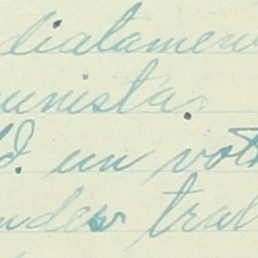 diatamen
unista.
d. un voto
ndes tral